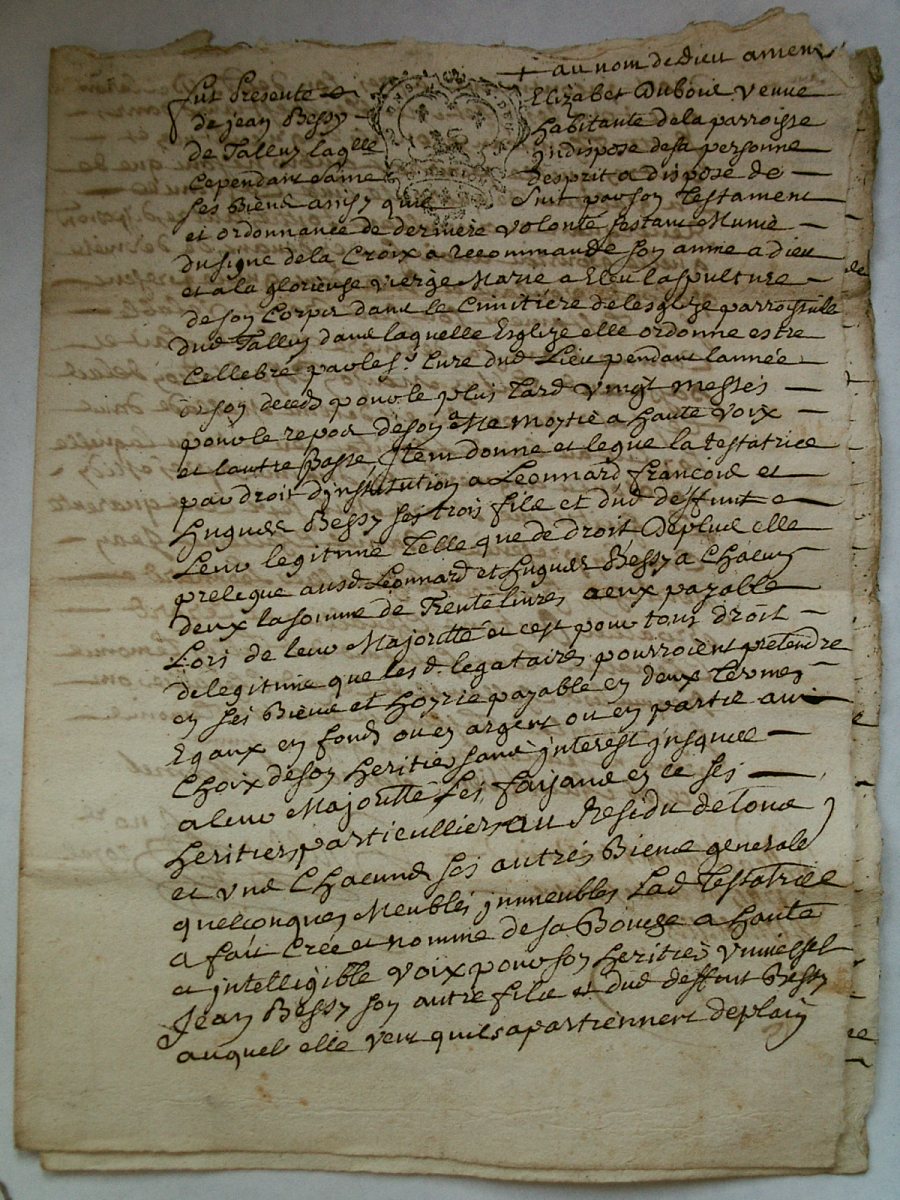 + au nom de dieu amen
fut presente Elizabet Dubois veuve
de jean Bessy habitante de la parroisse
de Talluy laqlle indispose de sa personne
cependant saine desprit a dispose de
ses biens ainsy que suit par son Testament
et ordonnance de derniere volonté sestant Munie
du signe de la Croix a recommande son ame a dieu
et a la glorieuse vierge Marie a Eleu la spulture
de son Corps dans le Cimitiere de lesglize parroissialle
dud Talluy dans laquelle Esglize elle ordonne estre
Cellebré par le sr. Curé dud Lieu pendant lannée
son deceds pour le plus Tard vingt messes
pour le repos de son ame moytié a haute voix
et lautre basse, Item donne et legue la testatrice
par droit dinstitution a Leonnard francois et
hugues Bessy ses trois fils et dud deffunt
Leur legitime Telle que de droit Deplus elle
prelegue ausd. Leonnard et hugues Bessy a Chacun
deux la somme de Trente livres a eux payable
Lors de leur Majoritté et cest pour tous droit
de legitime que les d. legataires pourroient pretendre
en ses Biens et hoyrie payable en deux termes
Egaux en fond ou en argent ou en partie au
Choix de son heritier sans interest jusques
a leur Majoritté Les faisant en ce ses
heritiers particulliers au Residu de tous
et uns Chacuns ses autres Biens generale
quelconques Meubles immeubles Lad Testatrice
a fait Crée et nomme de sa Bouche a haute
et intelligible voix pour son heritier universel
Jean Bessy son autre fils et dud deffunt Bessy
auquel elle veut quils apartiennent deplain